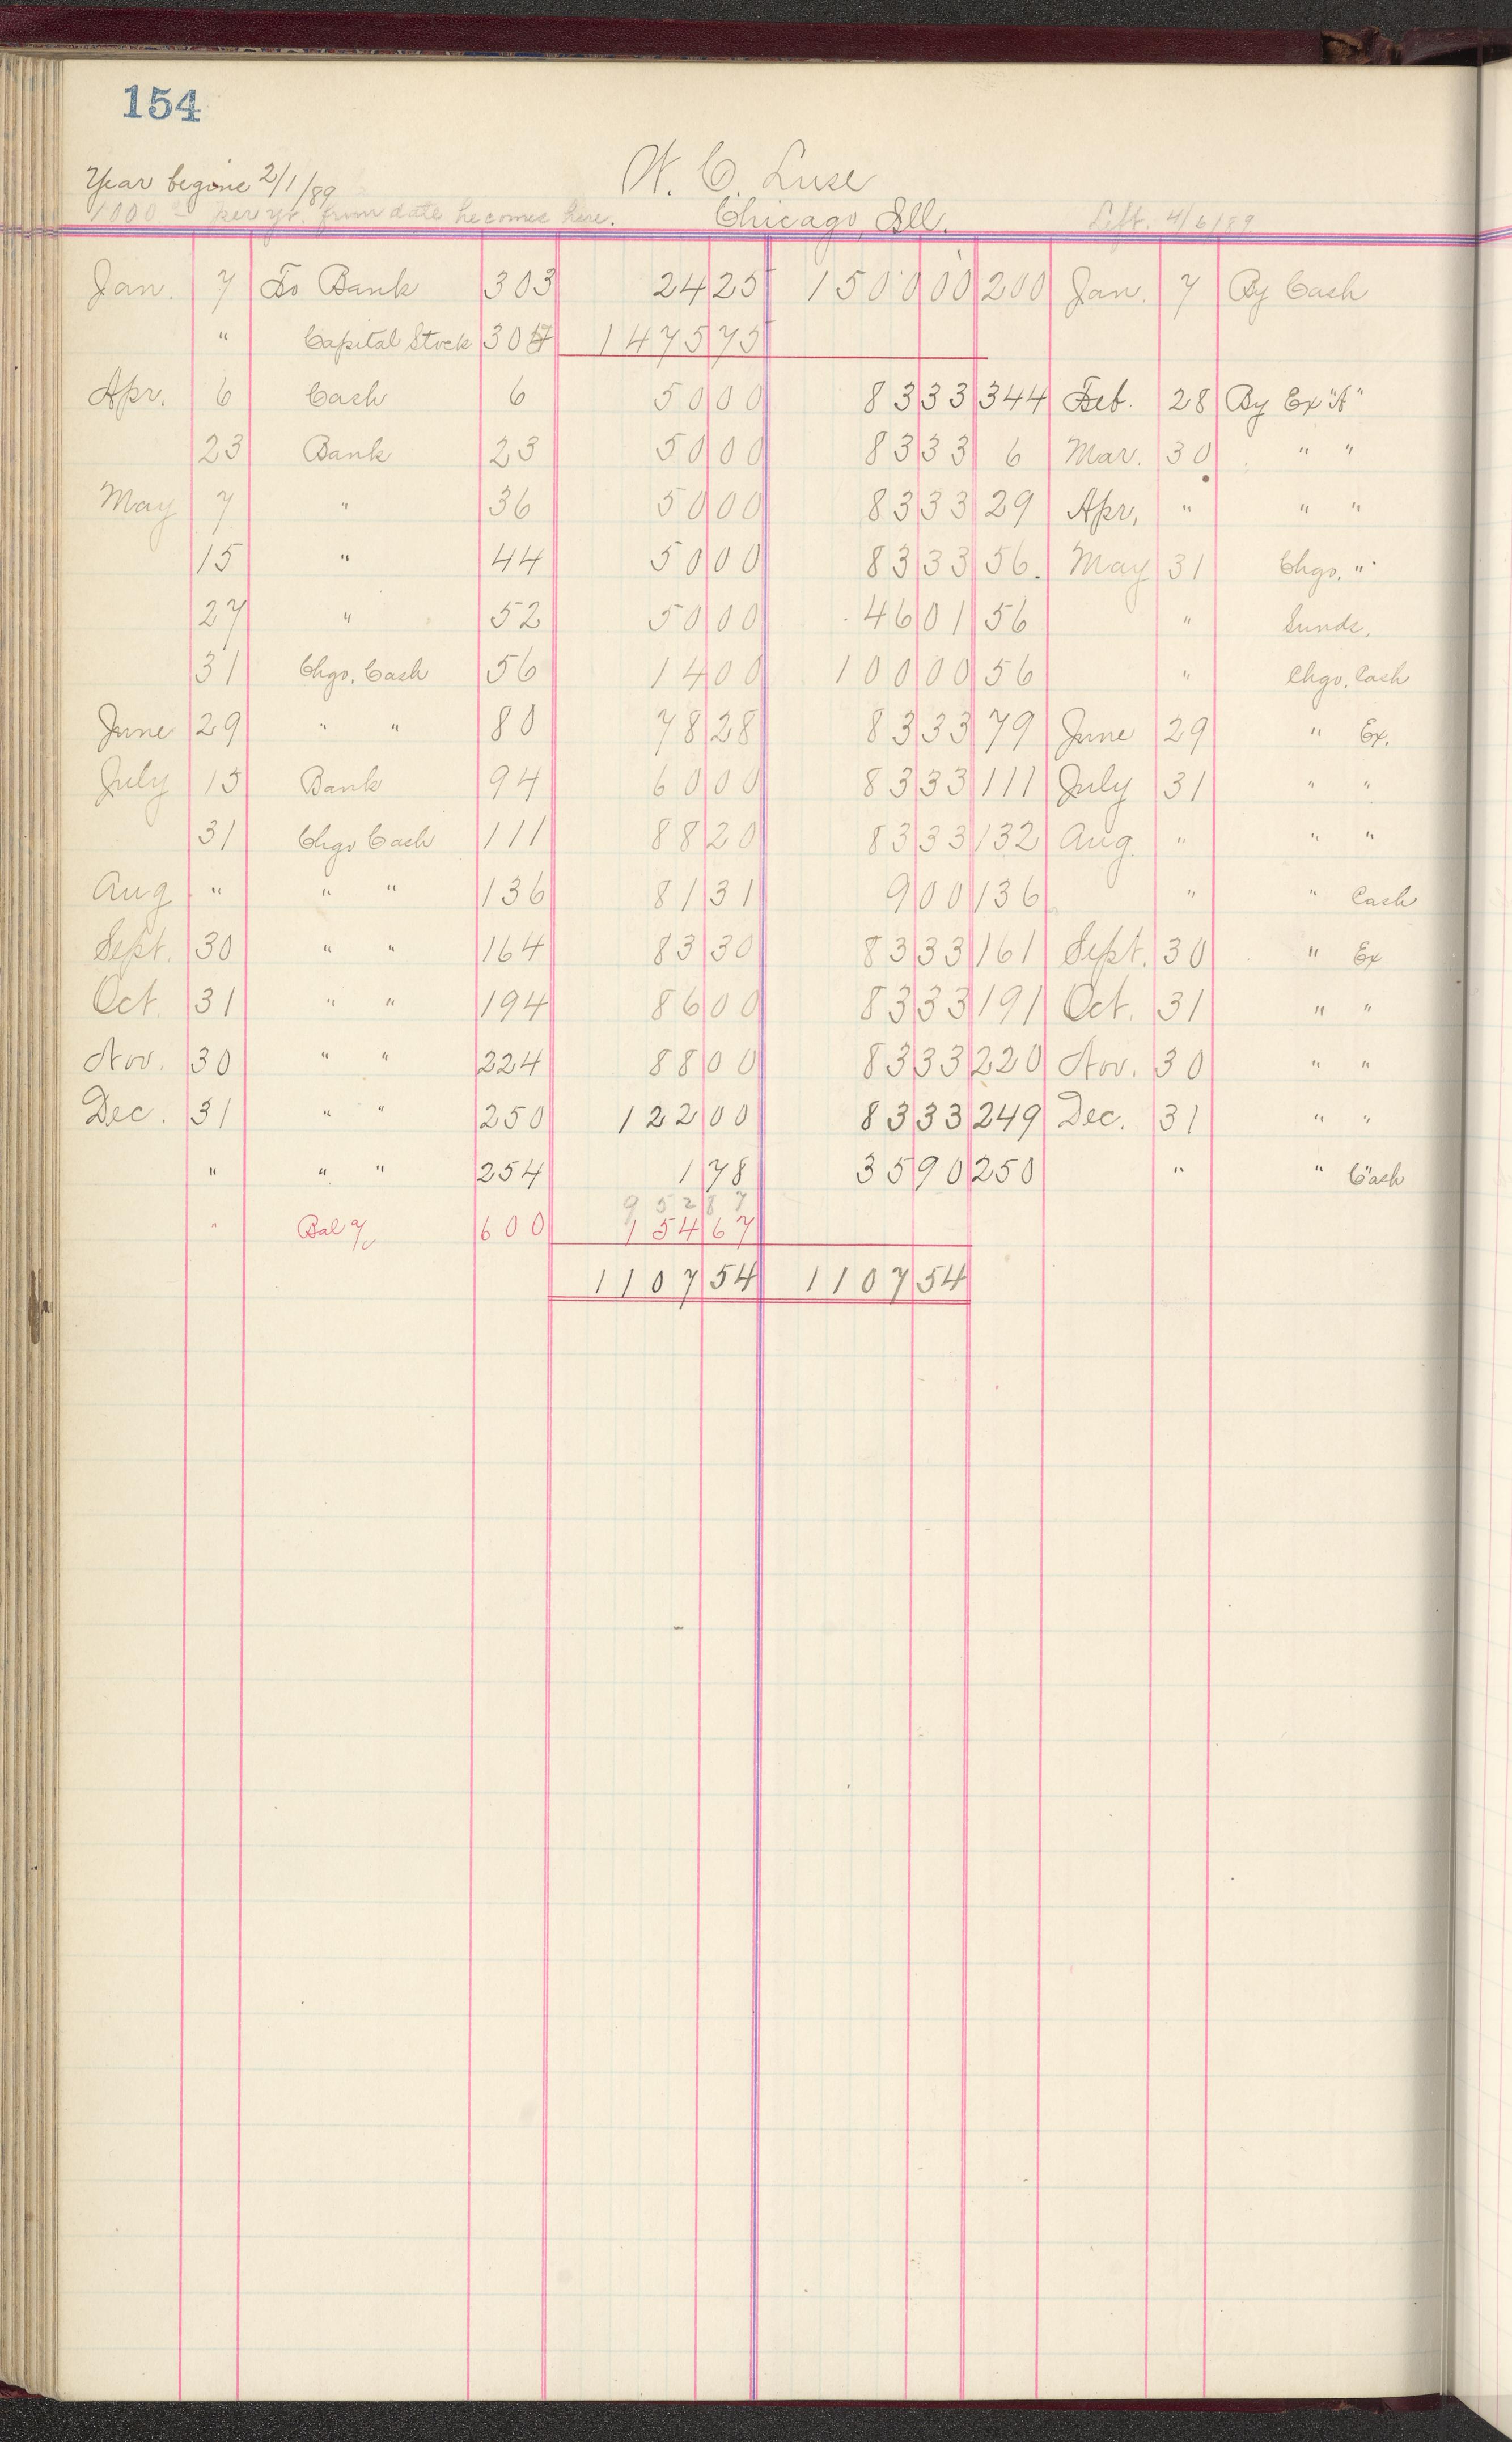 154
Year begins 2/1/89 W. C. Luse
1000 — per yr. from date he comes here. Chicago, Ill. Left. 4/6/89
Jan. 7 To Bank 303 24 25 1500 00 200 Jan. 7 By Cash
" Capital Stock 304 1475 75
Apr. 6 Cash 6 50 00 83 33 344 Feb. 28 By Ex "A"
23 Bank 23 50 00 83 33 6 Mar. 30 " "
May 7 " 36 50 00 83 33 29 Apr, " " "
15 " 44 50 00 83 33 56. May 31 Chgo. "
27 " 52 50 00 46 01 56 " Sunds.
31 Chgo. Cash 56 14 00 100 00 56 " Chgo. Cash
June 29 " " 80 78 28 83 33 79 June 29 " Ex.
July 15 Bank 94 60 00 83 33 111 July 31 " "
31 Chgo Cash 111 88 20 83 33 132 Aug. " " "
Aug " " " 136 81 31 9 00 136 " " Cash
Sept. 30 " " 164 83 30 83 33 161 Sept. 30 " Ex
Oct. 31 " " 194 86 00 83 33 191 Oct. 31 " "
Nov. 30 " " 224 88 00 83 33 220 Nov. 30 " "
Dec. 31 " " 250 122 00 83 33 249 Dec. 31 " "
" " " 254 1 78 35 90 250 " " Cash
952 87
" Bal 600 154 67
1107 54 1107 54